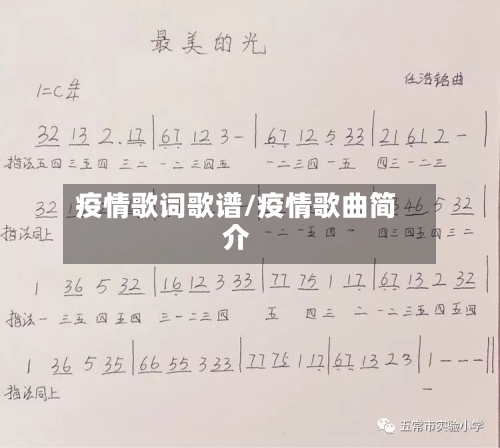 最美的光
1=C 4/4
任浩铭曲
32 13 2. 17 | 67 12 3 - | 67 12 5 33 | 21 61 2 - |
指法五四 三五四 三二 一二三四五 一二三四 一五 四三 四三一二三
疫情歌词歌谱/疫情歌曲简
介
32
46 5 32 |
指法同上
1 36 5 32 | 16 12 3 33 | 77 75 1 17 | 67 13 2 32 |
指法一 三五四五四 三一二三四 五 四三 二 一二三五四五四
1 36 5 35 | 66 55 3 33 | 77 75 1 17 | 67 13 2 3 | 1 - - - ||
指法同上
一
五常市实验小学